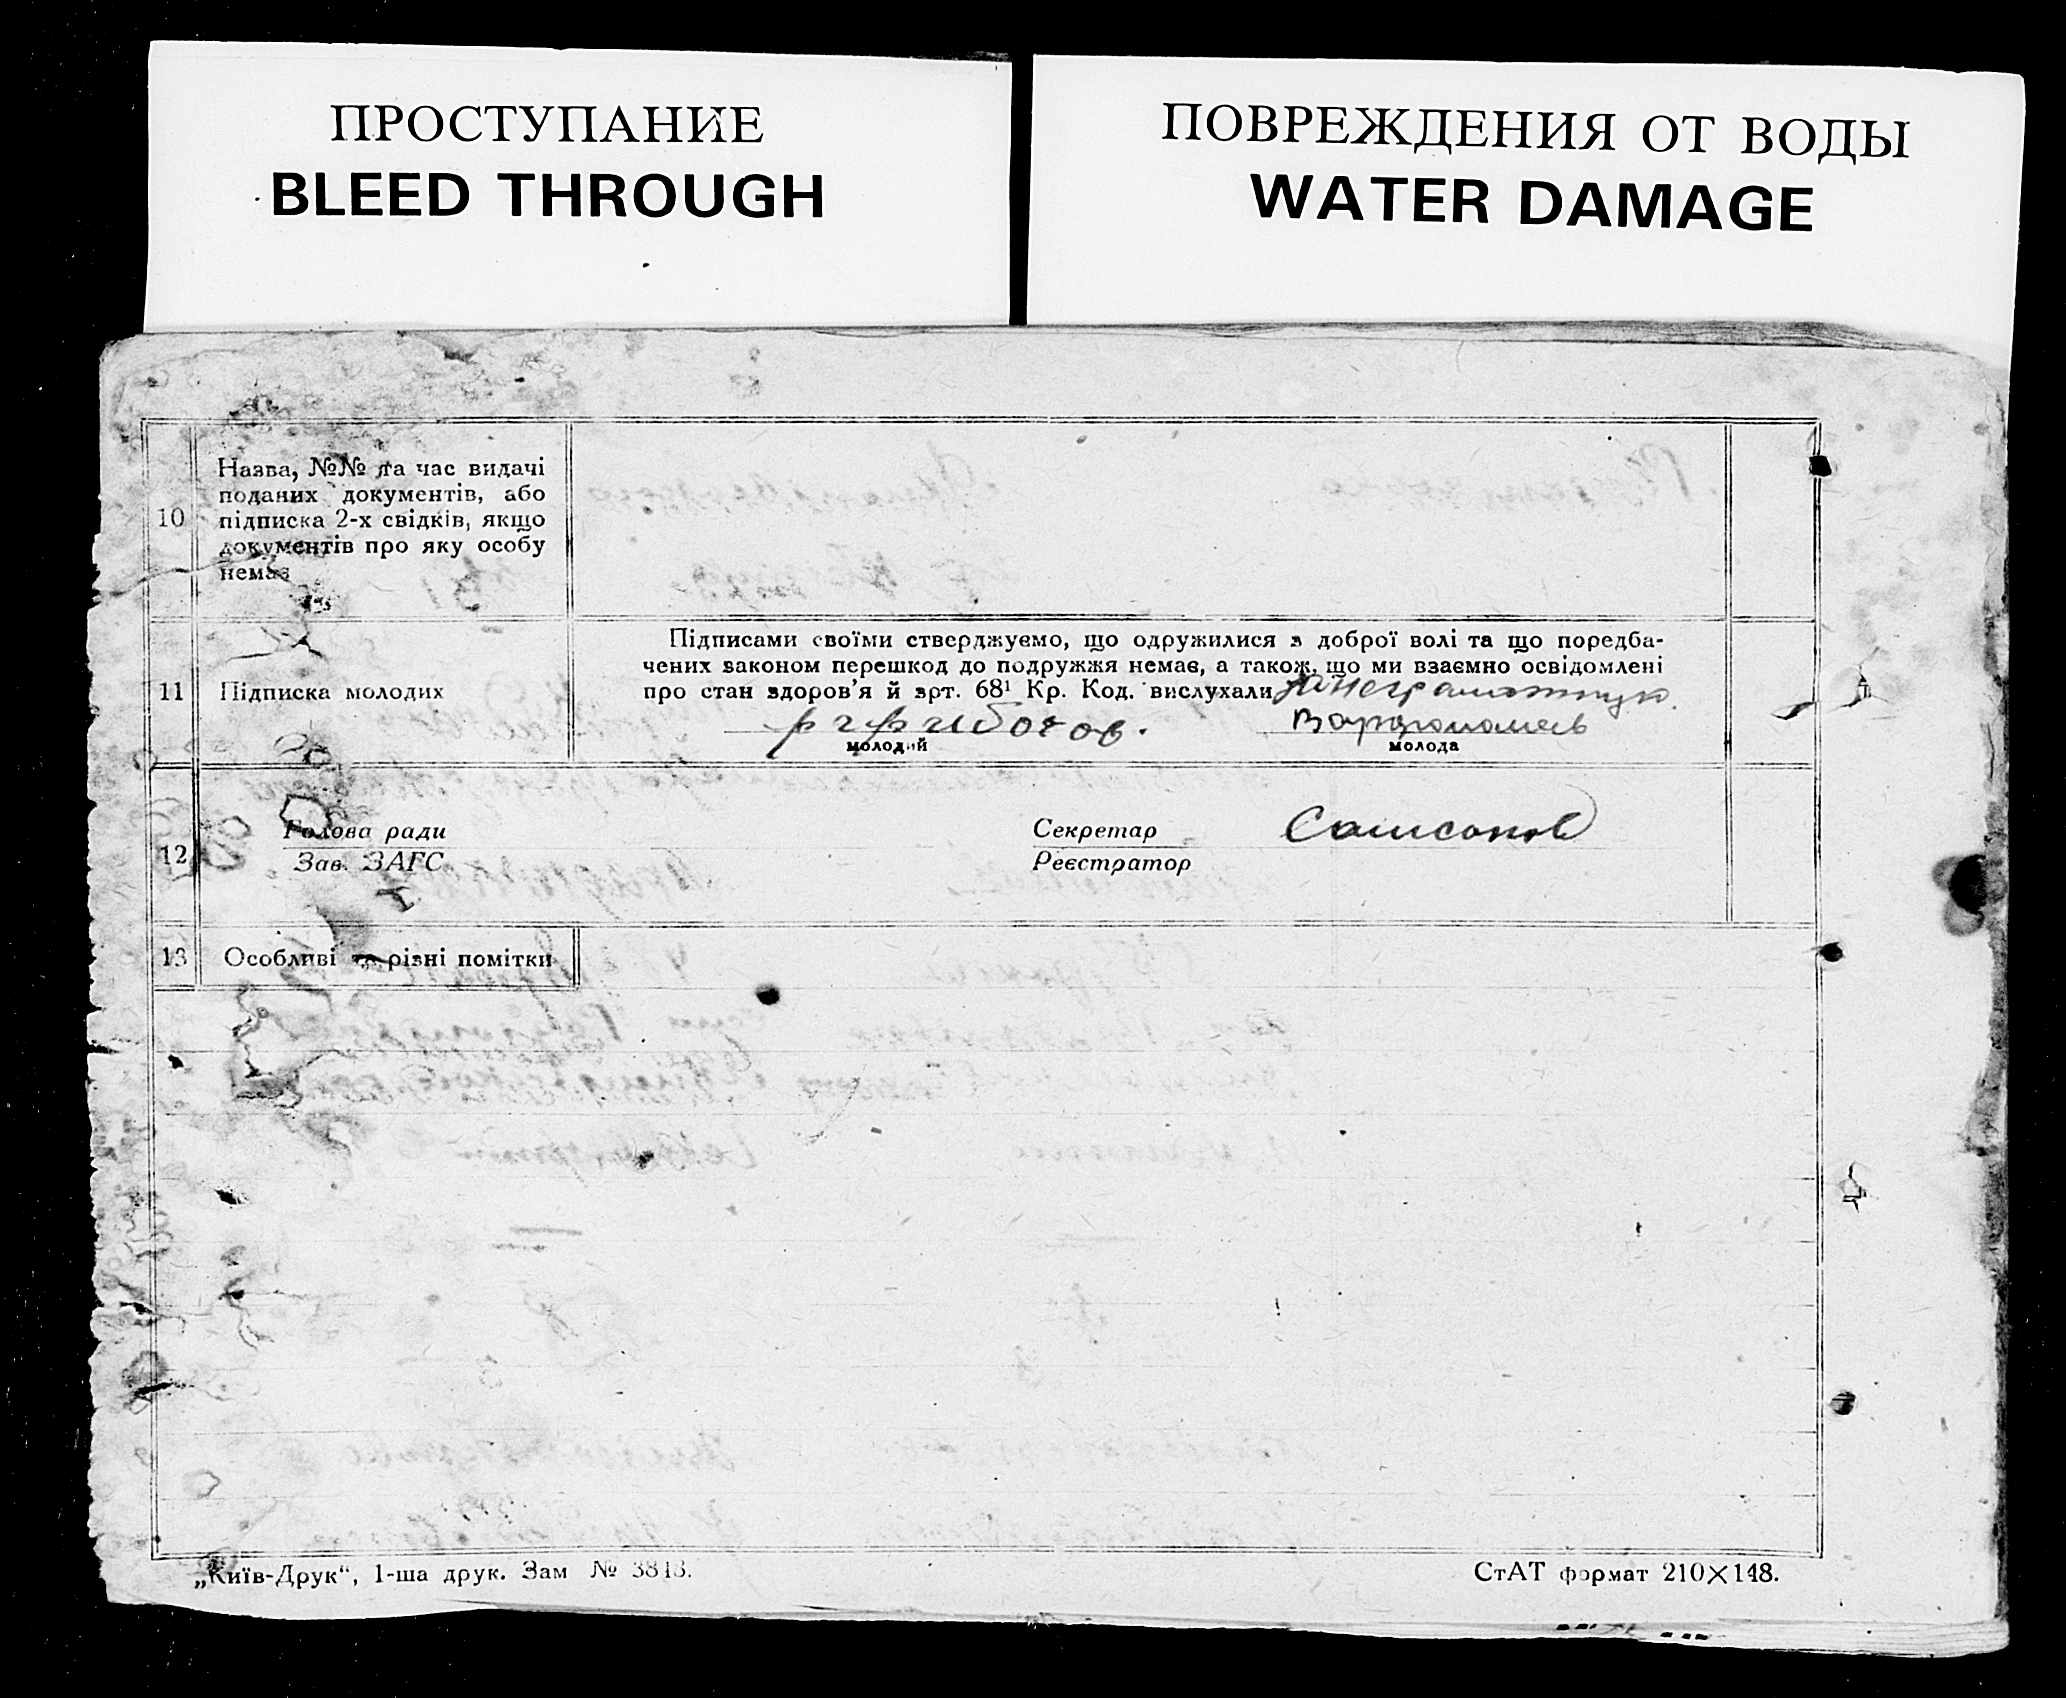 ПРОСТУПАНИЕ
BLEED THROUGH
ПОВРЕЖДЕНИЯ ОТ ВОДЫ
WATER DAMAGE
10
Назва, №№ та час видачі
поданих документів, або
підписка 2-х свідків, якщо
документів про яку особу
немає
11
Підписка молодих
Підписами своїми стверджуємо, що одружилися з доброї волі та що поредба-
чених законом перешкод до подружжя немає, а також, що ми взаємно освідомлені
про стан здоров'я й арт. 68¹ Кр. Код. вислухали
молодий
молода
12
Голова ради
Зав. ЗАГС
Секретар
Реєстратор
Самсонов
13
Особливі та різні помітки
„Київ-Друк“, 1-ша друк. Зам № 3843.
СтАТ формат 210×148.